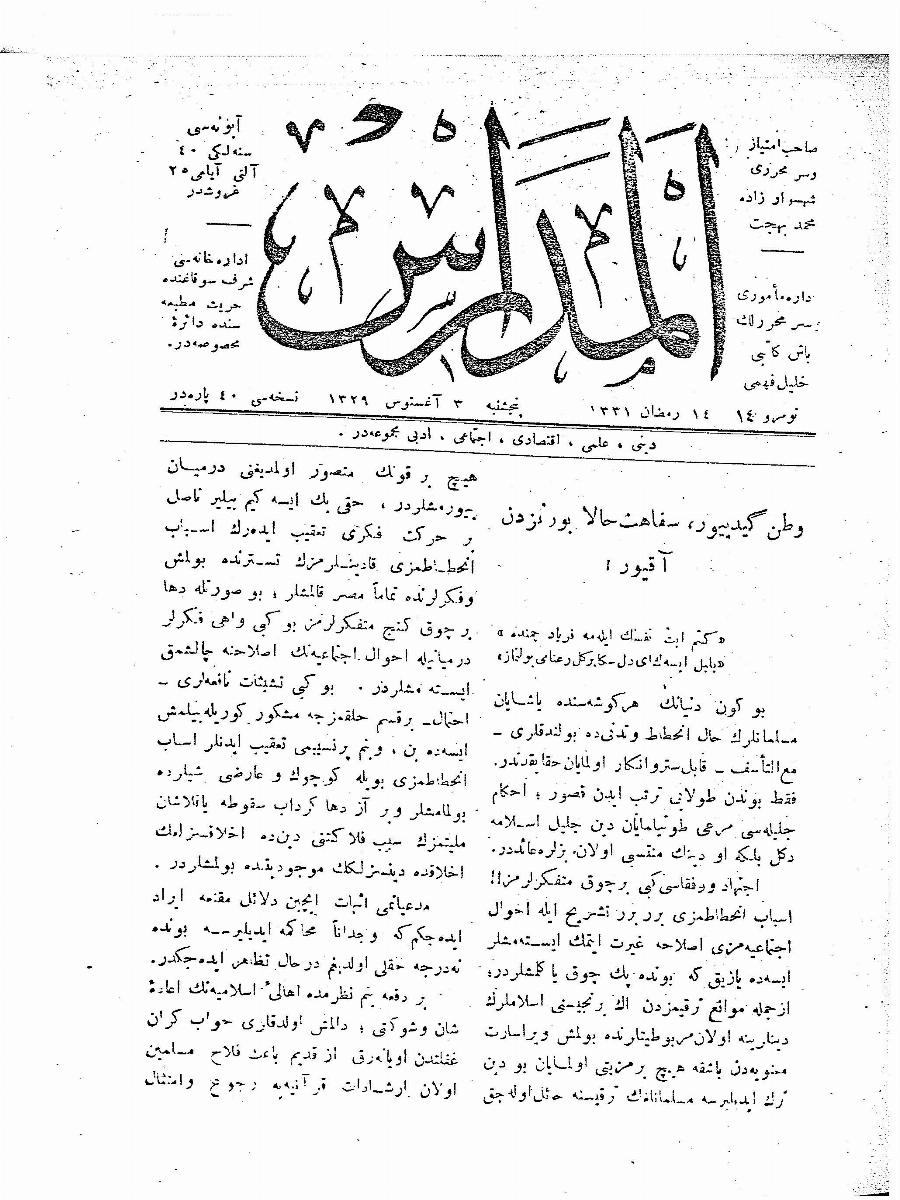 المدارس
صاحب امتیاز
وسر محرری
شهسوار زاده
محمد بهجت
اداره مأموری
سر محررلك
باش کاتبی
خلیل فهمی
آبونه‌سی
سنه‌لکی ٤٠
آلتی آیلغی ٢٥
غروشدر
اداره خانه‌سی
شرف سوقاغنده
حریت مطبعه
سنده دائرهٔ
مخصوصه‌در.
نومرو ١٤ ١٤ رمضان ١٣٣١ پنجشنبه ٣ آغستوس ١٣٢٩ نسخه‌سی ٤٠ پاره‌در
دینی ، علمی ، اقتصادی ، اجتماعی ، ادبی مجموعه‌در .
وطن گیدییور، سفاهت حالا بورنزدن
آقیور !
«کتم ایت نفسك ایله‌مه فریاد چمنده»
«بلبل ایسه‌ك ای دل‌ـ‌کا بر کل رعنامی بولنماز»
بو کون دنیانك هر کوشه‌سنده یاشایان
مسلمانلرك حال انحطاط وتدنی‌ده بولندقلری ـ
مع التأسف ـ قابل ستر وانکار اولمایان حقایقدندر.
فقط بوندن طولایی ترتب ایدن قصور ؛ احکام
جلیله‌سی مرعی طوتیلمایان دین جلیل اسلامه
دکل بلکه او دینك منتسبی اولان بزلره عائددر.
اجتهاد ورفقاسی کبی بر چوق متفکرلرمز!!
اسباب انحطاطمزی بر بر تشریح ایله احوال
اجتماعیه‌مزی اصلاحه غیرت ایتمك ایسته‌مشلر
ایسه‌ده یازیق که بونده پك چوق یا کلمشلردر؛
ازجمله موانع ترقیمزدن اك برنجیسنی اسلاملرك
دینلرینه اولان مربوطیتلرنده بولمش وبر اسارت
معنویه‌دن باشقه هیچ بر مزیتی اولمایان بو دین
ترك ایدیلیرسه مسلمانلرك ترقیسنه حائل اوله‌جق
هیچ بر قوتك متصور اولمدیغنی درمیان
بیورمشلردر ، حقی بك ایسه کیم بیلیر ناصل
بر حرکت فکری تعقیب ایده‌رك اسباب
انحطاطمزی قادینلرمزك تسترنده بولمش
وفکرلرنده تماماً مصر قالمشلر ؛ بو صورتله دها
بر چوق کنج متفکرلرمز بو کبی واهی فکرلر
درمیانیله احوال اجتماعیه‌نك اصلاحنه چالشمق
ایسته مشلردر . بو کبی تشبثات نافعه‌لری ـ
احتمال ـ بر قسم خلقمزجه مشکور کوریله بیلمش
ایسه‌ده بن ، وبنم پرنسیبمی تعقیب ایدنلر اسباب
انحطاطمزی بویله کوچوك و عارضی شیلرده
بولمامشلر وبر آز دها کرداب سقوطه یاقلاشان
ملیتمزك سبب فلاکتنی دین‌ده اخلاقسزلغك
اخلاقده دینسزلکك موجودیتنده بولمشلردر .
مدعیاتمی اثبات ایچین دلائل مقنعه ایراد
ایده‌جکم که وجداناً محاکمه ایدیلیرسه بونده
نه‌درجه حقلی اولدیغم درحال تظاهر ایده‌جکدر.
بر دفعه بنم نظرمده اهالیٔ اسلامیه‌نك اعادهٔ
شان وشوکتی ؛ دالمش اولدقلری خواب کران
غفلتدن اویانه‌رق از قدیم باعث فلاح مسلمین
اولان ارشادات قرآنیه‌یه رجوع وامتثال